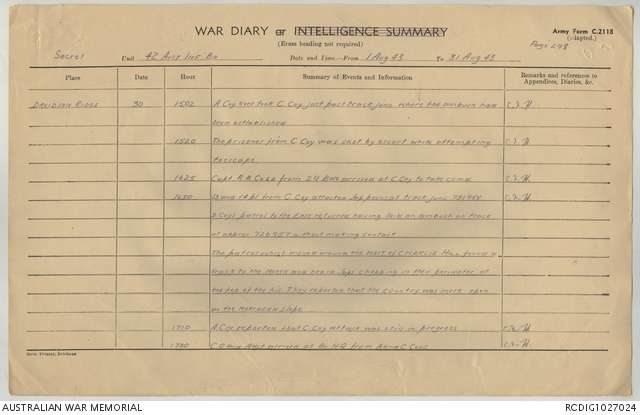 WAR DIARY or INTELLIGENCE SUMMARY
(Erase heading not required)
Army Form C.2118
(Adapted.)
Page 298
Secret Unit 42 Aust Inf Bn Date and Time—From 1 Aug 43 To 31 Aug 43
Place Date Hour Summary of Events and Information Remarks and references to Appendices, Diaries, &c.
DAVIDSON RIDGE 30 1502 A Coy line took C Coy just past track junc where the ambush had
been established
1520 The prisoner from C Coy was shot by escort while attempting
to escape.
1625 Capt R.A. from 24 Bn arrived at C Coy to take comd
1650 13 and 14 Pl from C Coy attacked Jap posns at track junc
D Coys patrol to the East returned having laid an ambush on track
at approx 726957 without making contact
The patrol which moved around the WEST of CHARLIE Hill found a
track to the North and heard Japs chopping in their perimeter at
the top of the hill. They reported that the country was more open
on the Northern slope.
1710 A Coy reported that C Coy attack was still in progress
arrived at Bn HQ from
AUSTRALIAN WAR MEMORIAL
RCDIG1027024